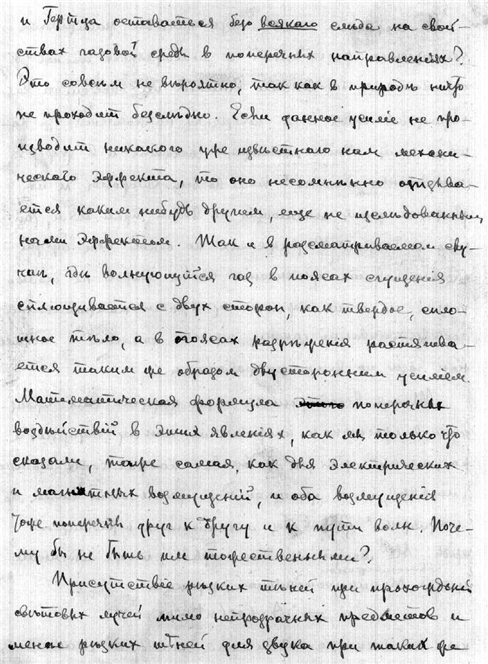 и Гертца оставаетея безъ всякаго слѣда на свой-
ствах газовой среды в поперечных направленіях?
Это совсѣм не вѣроятно, так как в природѣ ничто
не проходит безслѣдно. Если данное усиліе не про-
изводит никакого уже извѣстнаго нам механи-
ческаго эффекта, то оно несомнѣнно отзыва-
ется каким нибудь другим, еще не изслѣдованным
нами эффектом. Так и в разсматриваемом слу-
чаѣ, гдѣ волнующийся газ в поясах сгущенія
сплющивается с двух сторон, как твердое, спло-
шное тѣло, а в поясах разрѣженія растягива-
ется таким же образом двусторонним усиліем.
Математическая формула поперечных
воздѣйствій в этих явленіях, как мы только что
сказали, тоже самая, как для электрических
и магнитных возмущеній, и оба возмущенія
тоже поперечны друг к другу и к пути волн. Поче-
му бы не быть им тожественными?
Присутствіе рѣзких тѣней при прохожденіи
свѣтовых лучей мимо непрозрачных предметов и
менѣе рѣзких тѣней для звука при таких же